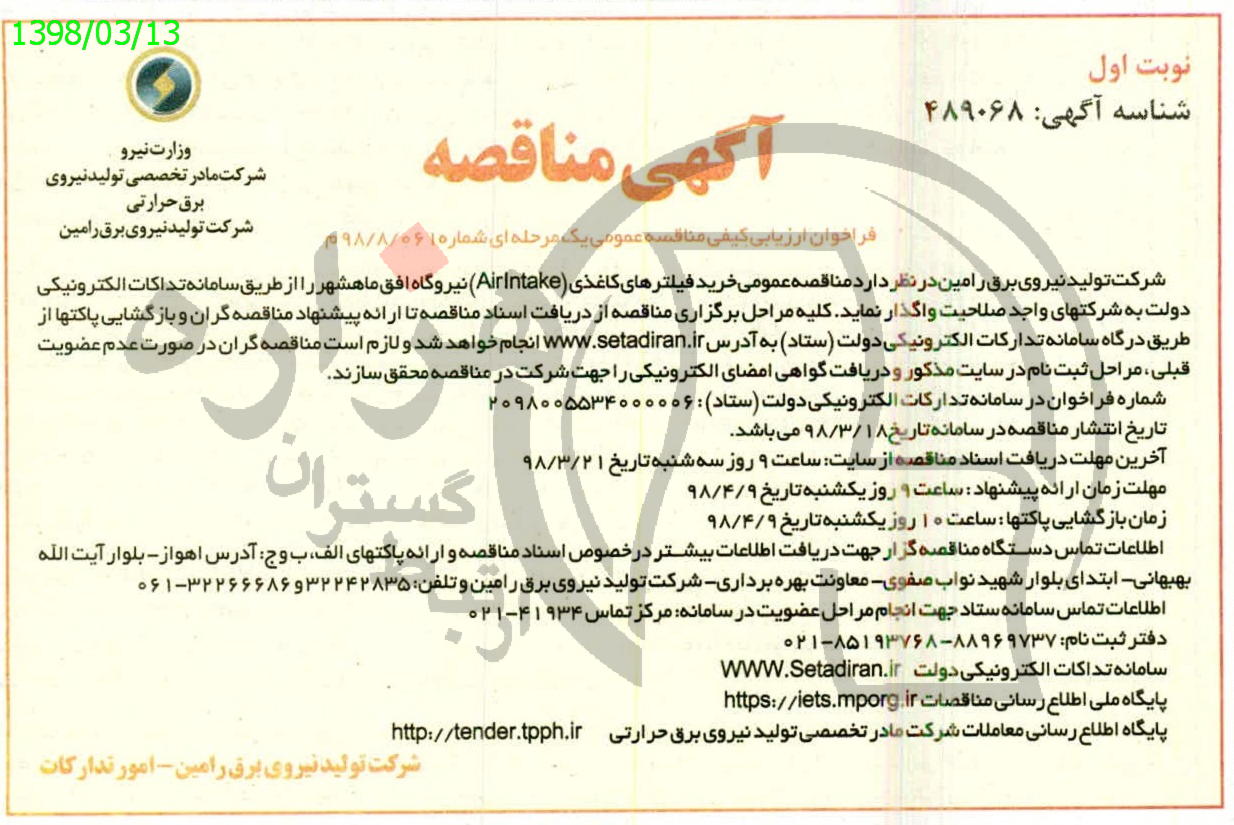 1398/03/13
نوبت اول
شناسه آگهی: ۴۸۹۰۶۸
وزارت نیرو
شرکت مادر تخصصی تولید نیروی
برق حرارتی
شرکت تولید نیروی برق رامین
آگهی مناقصه
فراخوان ارزیابی کیفی مناقصه عمومی یک مرحله ای شماره ۹۸/۸/۰۶۱ م
شرکت تولید نیروی برق رامین در نظر دارد مناقصه عمومی خرید فیلترهای کاغذی (AirIntake) نیروگاه افق ماهشهر را از طریق سامانه تداکات الکترونیکی
دولت به شرکتهای واجد صلاحیت واگذار نماید. کلیه مراحل برگزاری مناقصه از دریافت اسناد مناقصه تا ارائه پیشنهاد مناقصه گران و بازگشایی پاکتها از
طریق درگاه سامانه تدارکات الکترونیکی دولت (ستاد) به آدرس www.setadiran.ir انجام خواهد شد و لازم است مناقصه گران در صورت عدم عضویت
قبلی، مراحل ثبت نام در سایت مذکور و دریافت گواهی امضای الکترونیکی را جهت شرکت در مناقصه محقق سازند.
شماره فراخوان در سامانه تدارکات الکترونیکی دولت (ستاد): ۲۰۹۸۰۰۵۵۳۴۰۰۰۰۰۶
تاریخ انتشار مناقصه در سامانه تاریخ ۹۸/۳/۱۸ می باشد.
آخرین مهلت دریافت اسناد مناقصه از سایت: ساعت ۹ روز سه شنبه تاریخ ۹۸/۳/۲۱
مهلت زمان ارائه پیشنهاد: ساعت ۹ روز یکشنبه تاریخ ۹۸/۴/۹
زمان بازگشایی پاکتها: ساعت ۱۰ روز یکشنبه تاریخ ۹۸/۴/۹
اطلاعات تماس دستگاه مناقصه گزار جهت دریافت اطلاعات بیشتر در خصوص اسناد مناقصه و ارائه پاکتهای الف، ب و ج: آدرس اهواز – بلوار آیت الله
بهبهانی – ابتدای بلوار شهید نواب صفوی – معاونت بهره برداری – شرکت تولید نیروی برق رامین و تلفن: ۳۲۲۴۲۸۳۵ و ۳۲۲۶۶۶۸۶–۰۶۱
اطلاعات تماس سامانه ستاد جهت انجام مراحل عضویت در سامانه: مرکز تماس ۴۱۹۳۴–۰۲۱
دفتر ثبت نام: ۸۸۹۶۹۷۳۷–۸۵۱۹۳۷۶۸–۰۲۱
سامانه تداکات الکترونیکی دولت WWW.Setadiran.ir
پایگاه ملی اطلاع رسانی مناقصات https://iets.mporg.ir
پایگاه اطلاع رسانی معاملات شرکت مادر تخصصی تولید نیروی برق حرارتی http://tender.tpph.ir
شرکت تولید نیروی برق رامین – امور تدارکات
هزاره
گستران